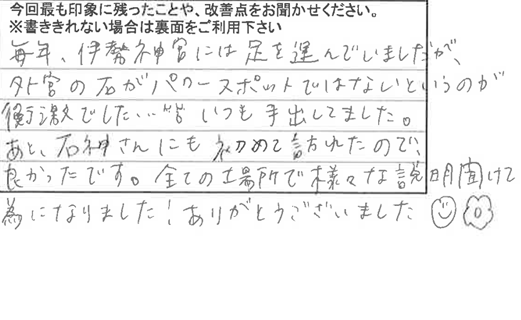 今回最も印象に残ったことや、改善点をお聞かせください。
※書ききれない場合は裏面をご利用下さい
毎年、伊勢神宮には足を運んでいましたが、
外宮の石がパワースポットではないというのが
衝激でした…皆いつも手出してました。
あと、石神さんにも初めて訪れたので、
良かったです。全ての場所で様々な説明聞けて
為になりました！ありがとうございました